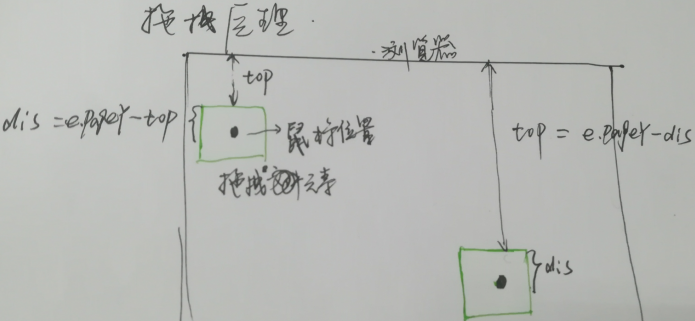 拖拽原理.
浏览器
top
dis = e.pageY - top
鼠标位置
top = e.pageY - dis
拖拽元素
dis